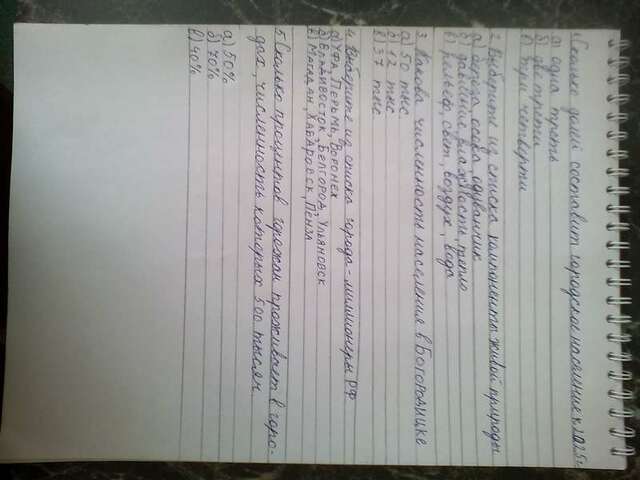 1. Сколько долей составит городское население к 2025 г
а) одна треть
б) две трети
в) три четверти
2. Выберите из списка компоненты живой природы
а) береза, осока, одуванчик
б) давление, влажность, тепло
в) рельеф, свет, воздух, вода
3. Какова численность населения в Богородицке
а) 50 тыс
б) 12 тыс
в) 37 тыс
4. Выберите из списка города - миллионеры РФ
а) Уфа, Пермь, Воронеж
б) Владивосток, Белгород, Ульяновск
в) Магадан, Хабаровск, Пенза
5. Сколько процентов горожан проживает в горо-
дах, численность которых 500 тысяч
а) 50%
б) 70%
в) 40%